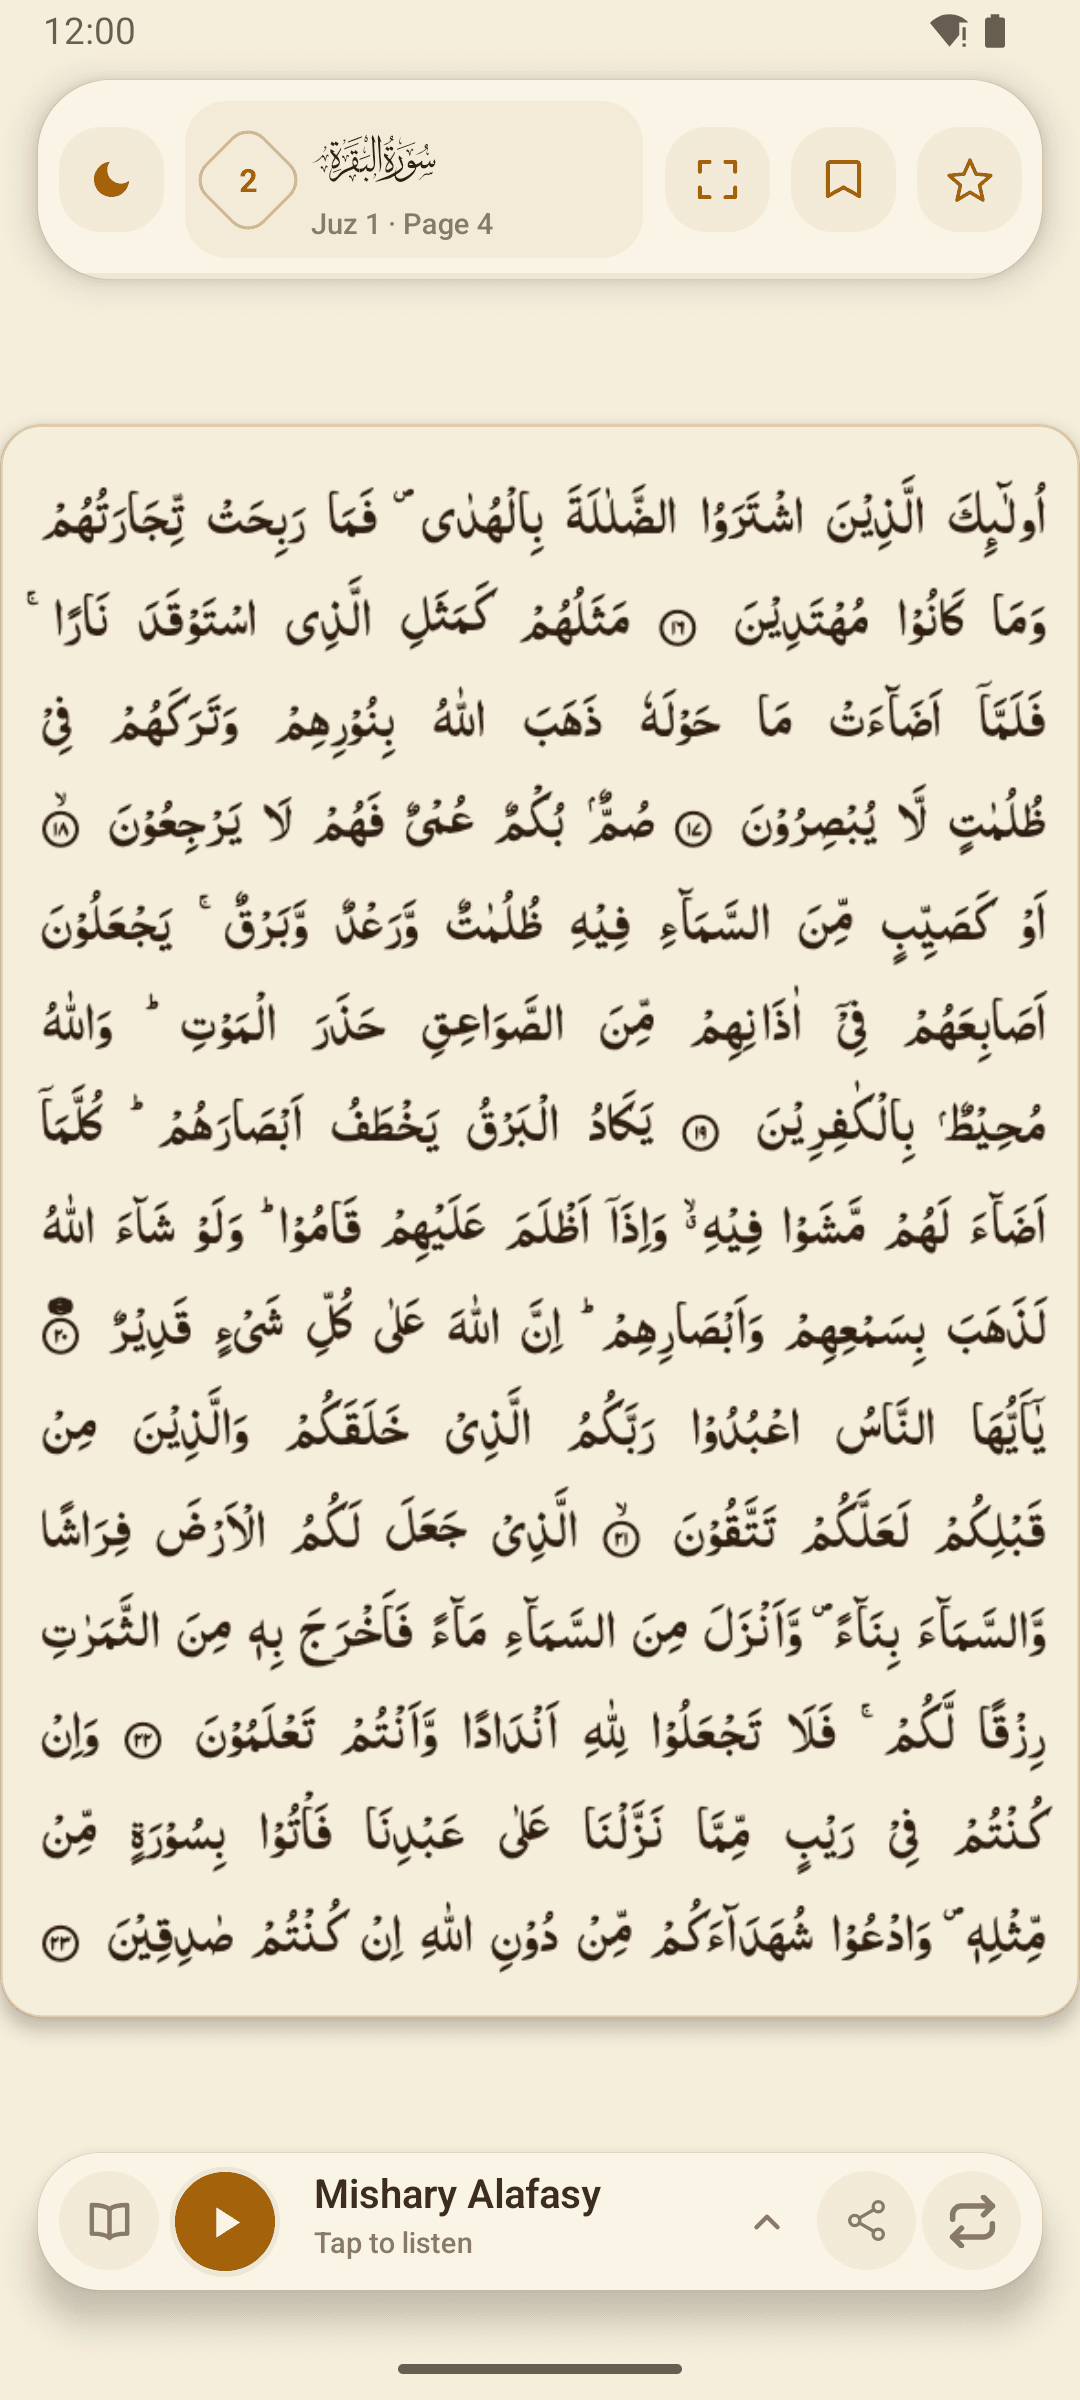 12:00
2
سُورَةُ الْبَقَرَة
Juz 1 · Page 4
اُولٰٓئِكَ الَّذِيْنَ اشْتَرَوُا الضَّلٰلَةَ بِالْهُدٰى ۪ فَمَا رَبِحَتْ تِّجَارَتُهُمْ
وَمَا كَانُوْا مُهْتَدِيْنَ ۝۱۶ مَثَلُهُمْ كَمَثَلِ الَّذِى اسْتَوْقَدَ نَارًا ۚ
فَلَمَّآ اَضَآءَتْ مَا حَوْلَهٗ ذَهَبَ اللّٰهُ بِنُوْرِهِمْ وَتَرَكَهُمْ فِىْ
ظُلُمٰتٍ لَّا يُبْصِرُوْنَ ۝۱۷ صُمٌّۢ بُكْمٌ عُمْىٌ فَهُمْ لَا يَرْجِعُوْنَ ۝۱۸ۙ
اَوْ كَصَيِّبٍ مِّنَ السَّمَآءِ فِيْهِ ظُلُمٰتٌ وَّرَعْدٌ وَّبَرْقٌ ۚ يَجْعَلُوْنَ
اَصَابِعَهُمْ فِىْٓ اٰذَانِهِمْ مِّنَ الصَّوَاعِقِ حَذَرَ الْمَوْتِ ؕ وَاللّٰهُ
مُحِيْطٌۢ بِالْكٰفِرِيْنَ ۝۱۹ يَكَادُ الْبَرْقُ يَخْطَفُ اَبْصَارَهُمْ ؕ كُلَّمَآ
اَضَآءَ لَهُمْ مَّشَوْا فِيْهِ ۙۗ وَاِذَآ اَظْلَمَ عَلَيْهِمْ قَامُوْا ؕ وَلَوْ شَآءَ اللّٰهُ
لَذَهَبَ بِسَمْعِهِمْ وَاَبْصَارِهِمْ ؕ اِنَّ اللّٰهَ عَلٰى كُلِّ شَىْءٍ قَدِيْرٌ ۝۲۰
يٰٓاَيُّهَا النَّاسُ اعْبُدُوْا رَبَّكُمُ الَّذِىْ خَلَقَكُمْ وَالَّذِيْنَ مِنْ
قَبْلِكُمْ لَعَلَّكُمْ تَتَّقُوْنَ ۝۲۱ۙ الَّذِىْ جَعَلَ لَكُمُ الْاَرْضَ فِرَاشًا
وَّالسَّمَآءَ بِنَآءً ۪ وَّاَنْزَلَ مِنَ السَّمَآءِ مَآءً فَاَخْرَجَ بِهٖ مِنَ الثَّمَرٰتِ
رِزْقًا لَّكُمْ ۚ فَلَا تَجْعَلُوْا لِلّٰهِ اَنْدَادًا وَّاَنْتُمْ تَعْلَمُوْنَ ۝۲۲ وَاِنْ
كُنْتُمْ فِىْ رَيْبٍ مِّمَّا نَزَّلْنَا عَلٰى عَبْدِنَا فَاْتُوْا بِسُوْرَةٍ مِّنْ
مِّثْلِهٖ ۪ وَادْعُوْا شُهَدَآءَكُمْ مِّنْ دُوْنِ اللّٰهِ اِنْ كُنْتُمْ صٰدِقِيْنَ ۝۲۳
Mishary Alafasy
Tap to listen